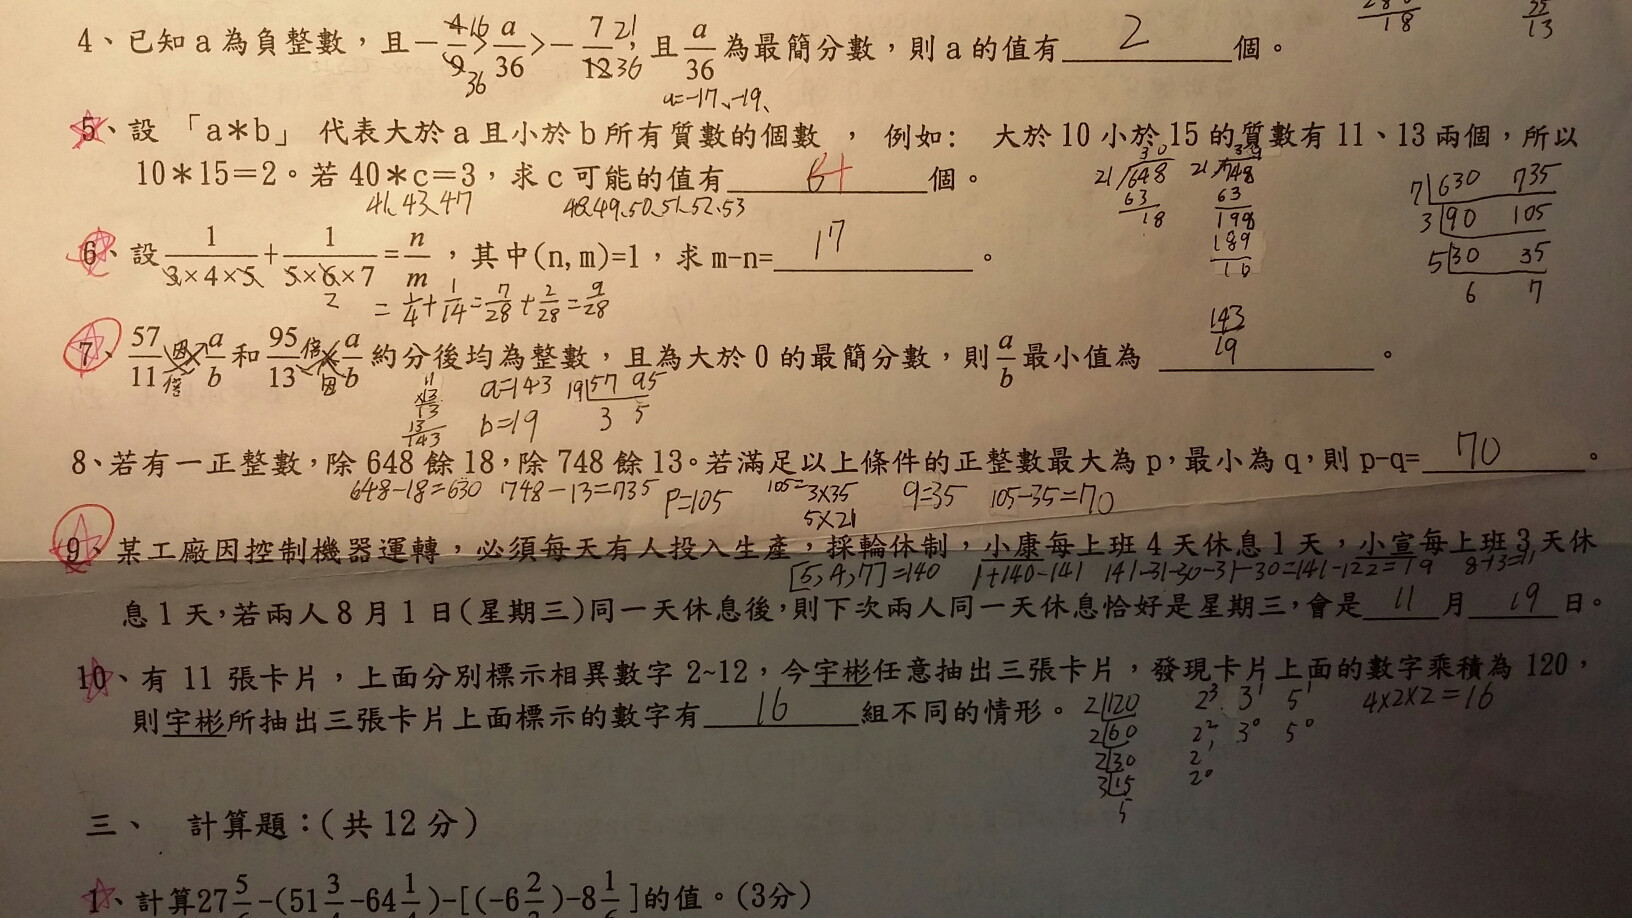 4、已知a為負整數，且－4/9 > a/36 >－7/12，且 a/36 為最簡分數，則a的值有 2 個。
16 36 21 36
a=-17、-19、
18 25 13
5、設「a＊b」代表大於a且小於b所有質數的個數，例如：大於10小於15的質數有11、13兩個，所以
10＊15＝2。若40＊c＝3，求c可能的值有 6 個。
41、43、47 48、49、50、51、52、53
30 21/648 63 18
21/748 63 198 189
7 630 735
3 90 105
5 30 35
6 7
6、設 1/3×4×5 + 1/5×6×7 = n/m，其中(n,m)=1，求m-n= 17 。
2 = 1/4 + 1/14 = 7/28 + 2/28 = 9/28
7、57/11 × a/b 和 95/13 × a/b 約分後均為整數，且為大於0的最簡分數，則 a/b 最小值為 143/19 。
因 倍 倍 因
11 ×13 13 143 a=143 b=19 19 57 95 3 5
8、若有一正整數，除648餘18，除748餘13。若滿足以上條件的正整數最大為p，最小為q，則p-q= 70 。
648-18=630 748-13=735 P=105 105= 3×35 5×21 q=35 105-35=70
9、某工廠因控制機器運轉，必須每天有人投入生產，採輪休制，小康每上班4天休息1天，小宣每上班3天休
[5,4,7]=140 1+140=141 141-31-30-31-30=141-122=19 8+3=11
息1天，若兩人8月1日(星期三)同一天休息後，則下次兩人同一天休息恰好是星期三，會是 11 月 19 日。
10、有11張卡片，上面分別標示相異數字2~12，今宇彬任意抽出三張卡片，發現卡片上面的數字乘積為120，
則宇彬所抽出三張卡片上面標示的數字有 16 組不同的情形。
2 120
2 60
2 30
3 15
5
2³ 3¹ 5¹ 4×2×2=16
2² 3⁰ 5⁰
2¹
2⁰
三、 計算題：(共12分)
1、計算27 5/6 -(51 3/4 -64 1/4)-[(-6 2/3)-8 1/6]的值。(3分)